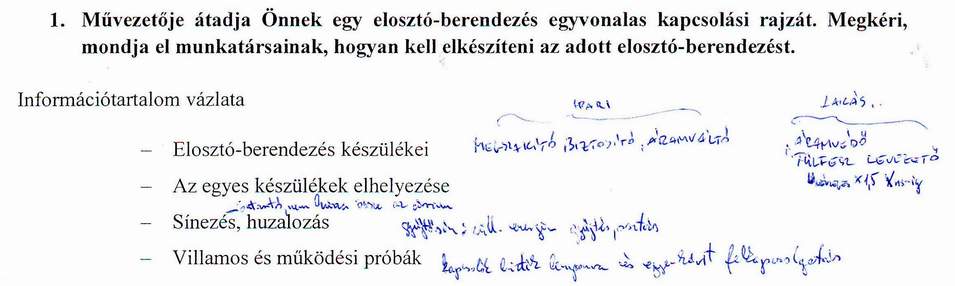 1. Művezetője átadja Önnek egy elosztó-berendezés egyvonalas kapcsolási rajzát. Megkéri,
mondja el munkatársainak, hogyan kell elkészíteni az adott elosztó-berendezést.
Információtartalom vázlata
IPARI
LAKÁS..
– Elosztó-berendezés készülékei
MEGSZAKÍTÓ, BIZTOSÍTÓ, ÁRAMVÁLTÓ
ÁRAMVÉDŐ
TÚLFESZ LEVEZETŐ
x1,5
– Az egyes készülékek elhelyezése
nem össze az
– Sínezés, huzalozás
gyűjtősín: vill. energia gyűjtés, osztás
– Villamos és működési próbák
kapcsolók és felkapcsolgatás